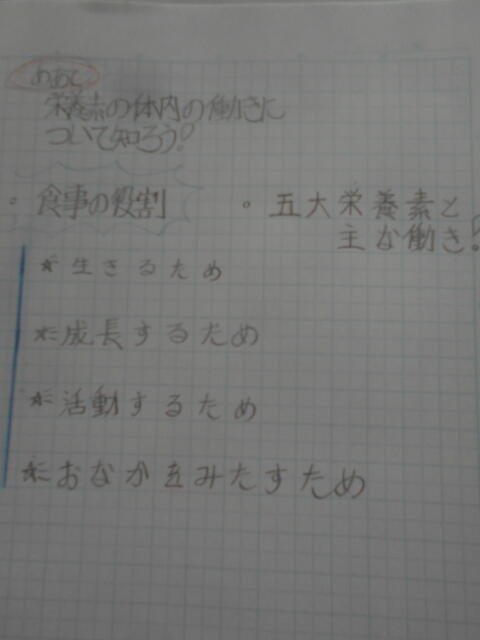 めあて
栄養素の体内の働きに
ついて知ろう!
・食事の役割
・五大栄養素と
主な働き!
★生きるため
★成長するため
★活動するため
★おなかをみたすため